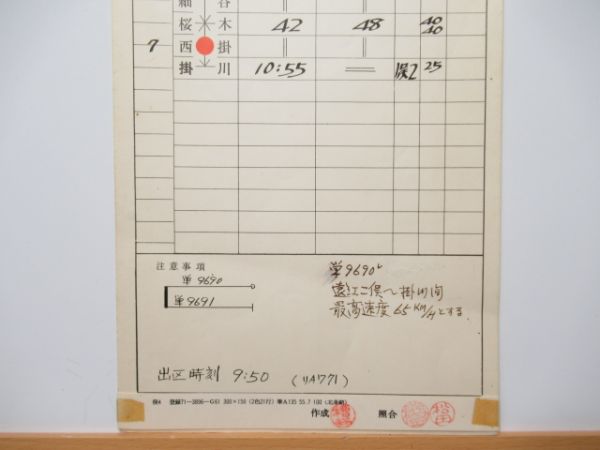 細 谷
桜 木 42 || 48 || 40 40
7 西 掛 || ||
掛 川 10:55 == 誤2 25
注意事項
単9690
単9691
単9690レ
遠江二俣〜掛川間
最高速度 65 KM/Hとする.
出区時刻 9:50 (リA771)
作成 照合